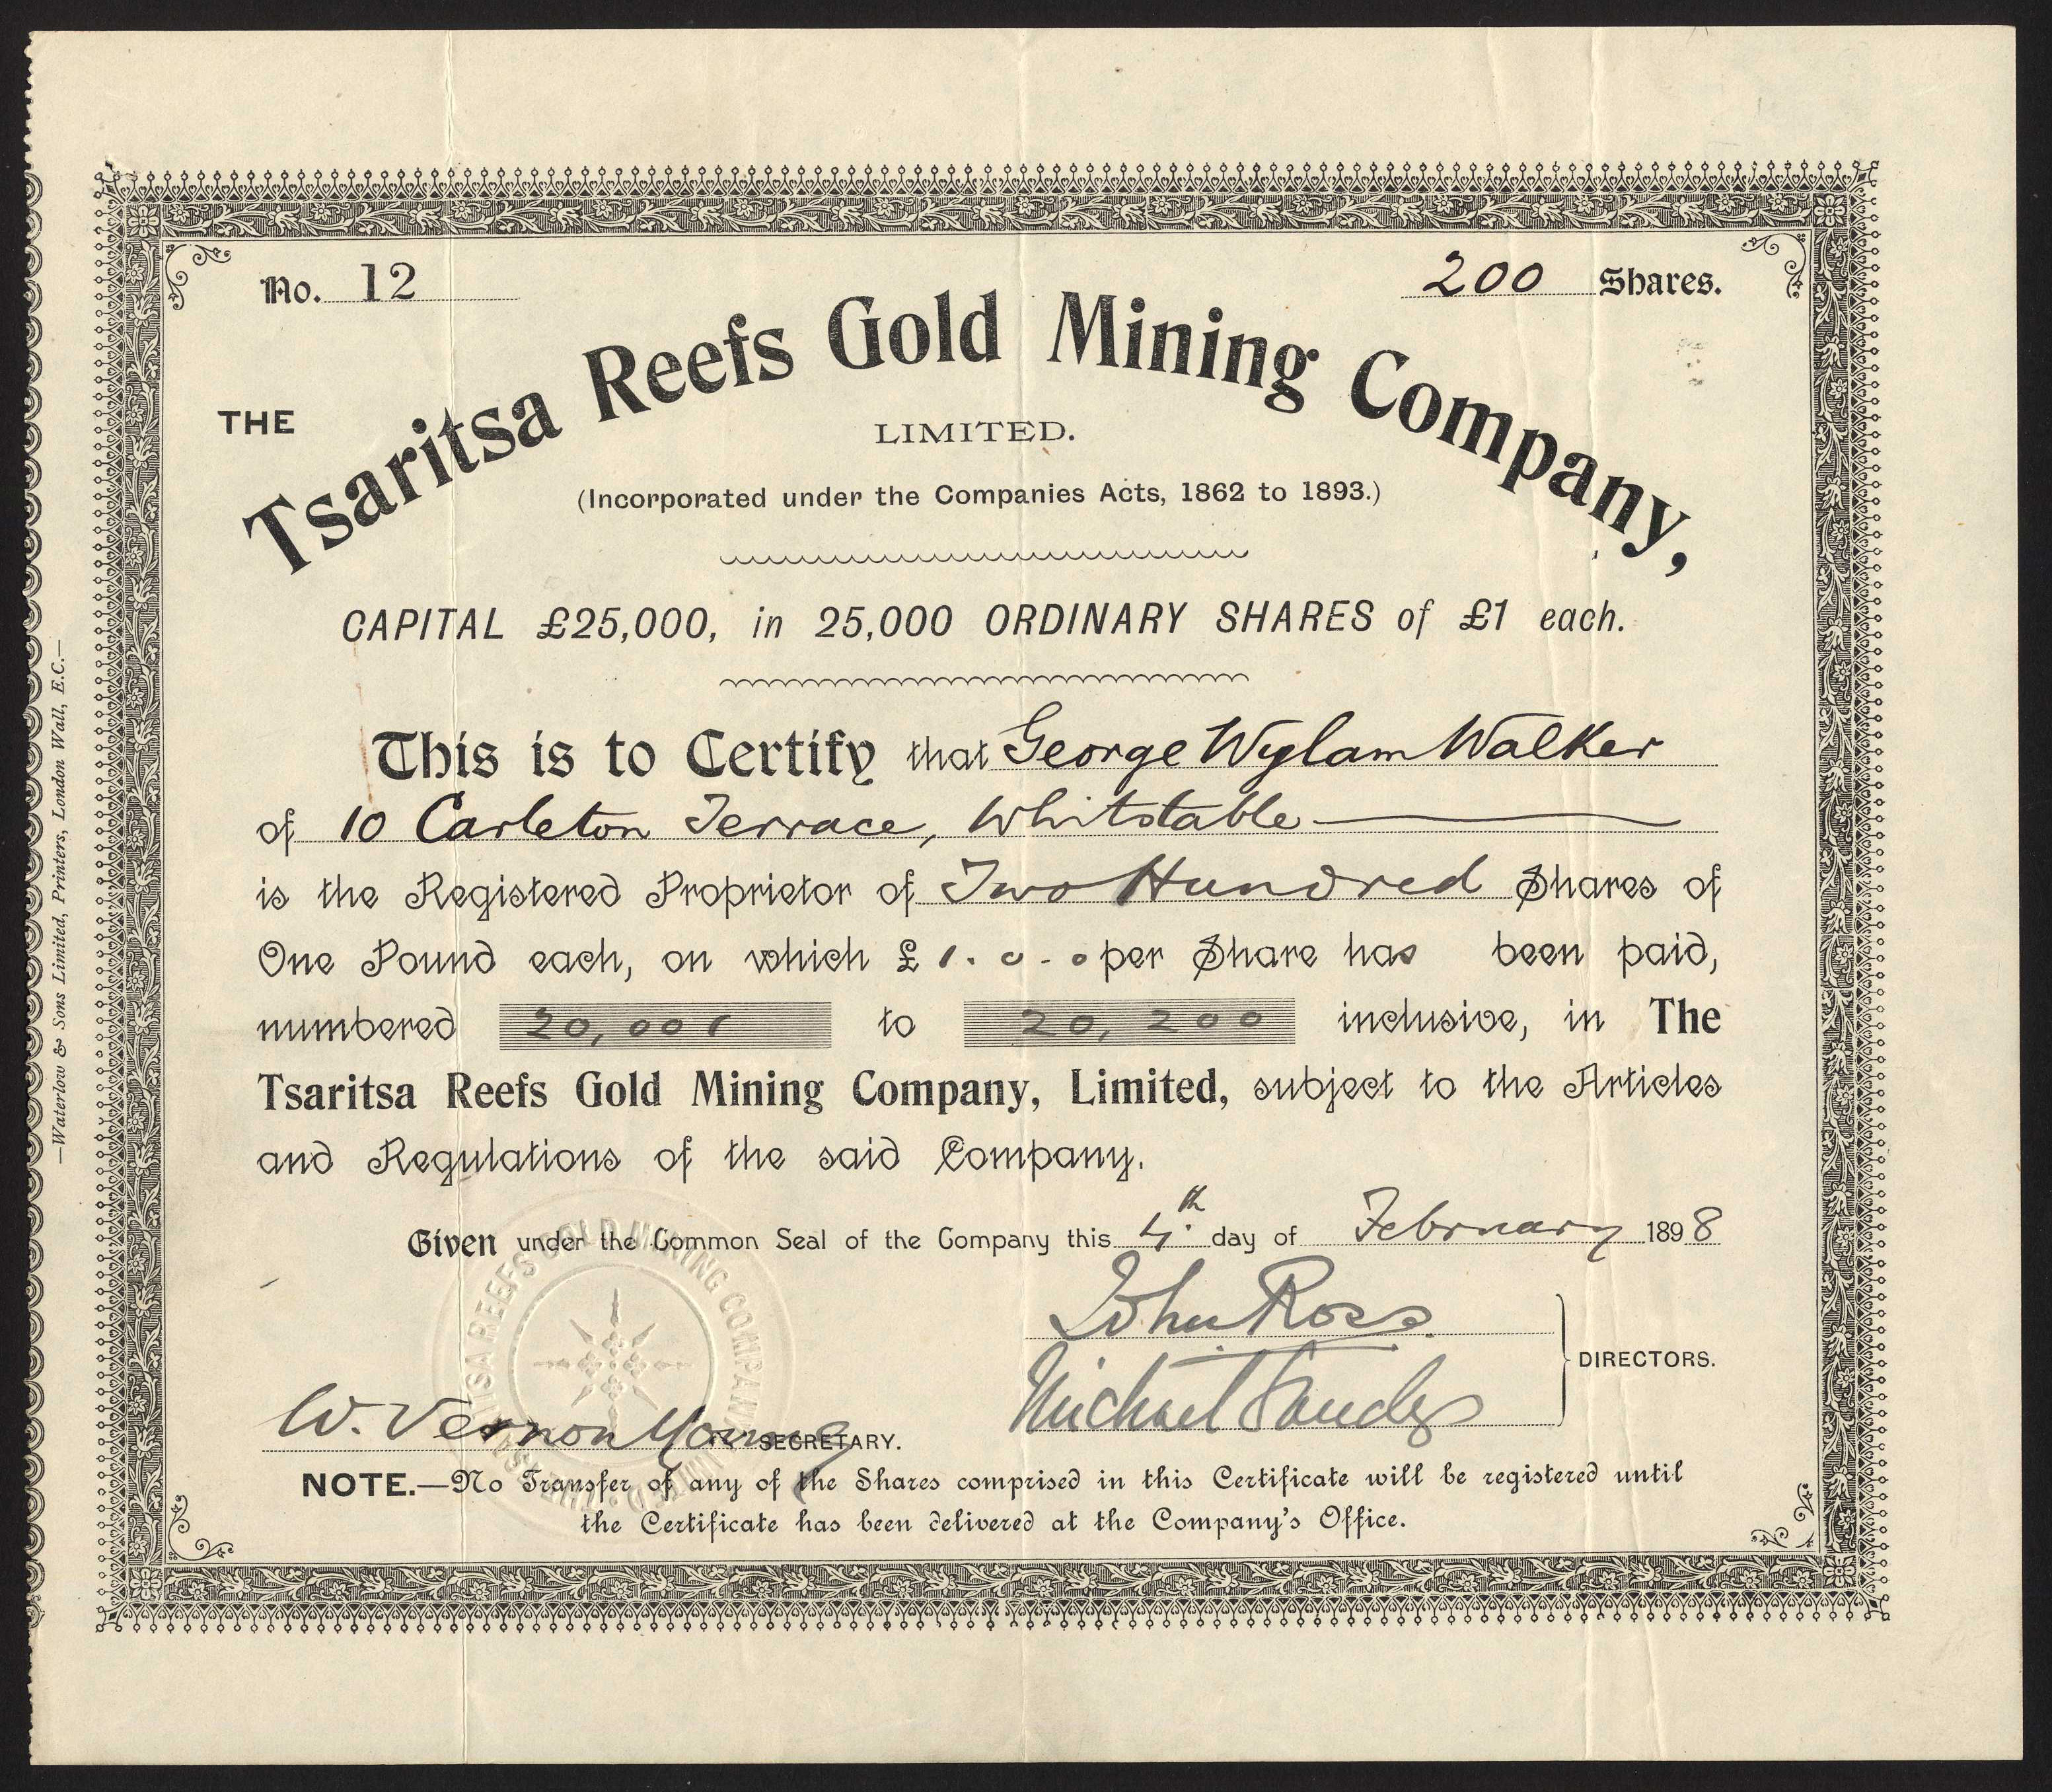 No. 12
200 Shares.
THE Tsaritsa Reefs Gold Mining Company,
LIMITED.
(Incorporated under the Companies Acts, 1862 to 1893.)
CAPITAL £25,000, in 25,000 ORDINARY SHARES of £1 each.
This is to Certify that George Wylam Walker
of 10 Carleton Terrace, Whitstable
is the Registered Proprietor of Two Hundred Shares of
One Pound each, on which £1.0.0 per Share has been paid,
numbered 20,001 to 20,200 inclusive, in The
Tsaritsa Reefs Gold Mining Company, Limited, subject to the Articles
and Regulations of the said Company.
Given under the Common Seal of the Company this 4th day of February 1898
John Ross
Michael
DIRECTORS.
W. Vernon Young SECRETARY.
NOTE.—No Transfer of any of the Shares comprised in this Certificate will be registered until
the Certificate has been delivered at the Company's Office.
THE TSARITSA REEFS GOLD MINING COMPANY LIMITED.
—Waterlow & Sons Limited, Printers, London Wall, E.C.—